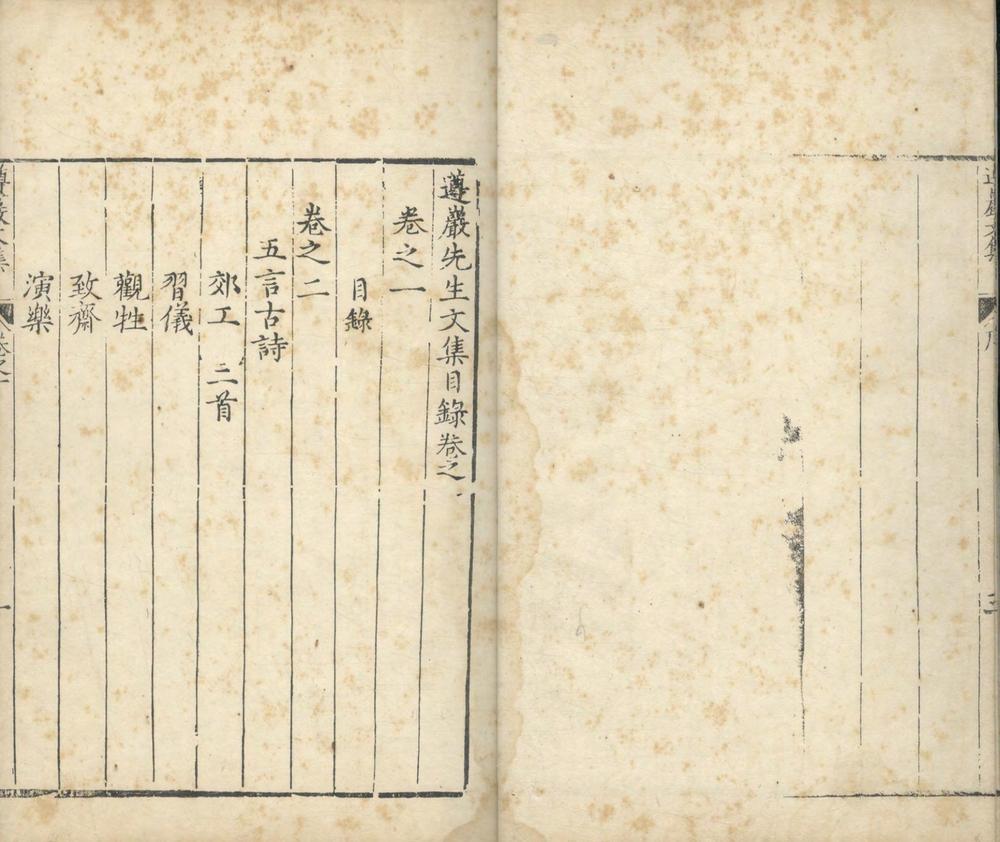 遵巖文集
序
三
遵巖先生文集目錄卷之
卷之一
目錄
卷之二
五言古詩
郊工 三首
習儀
觀牲
致齋
演樂
遵巖文集
卷之一
一